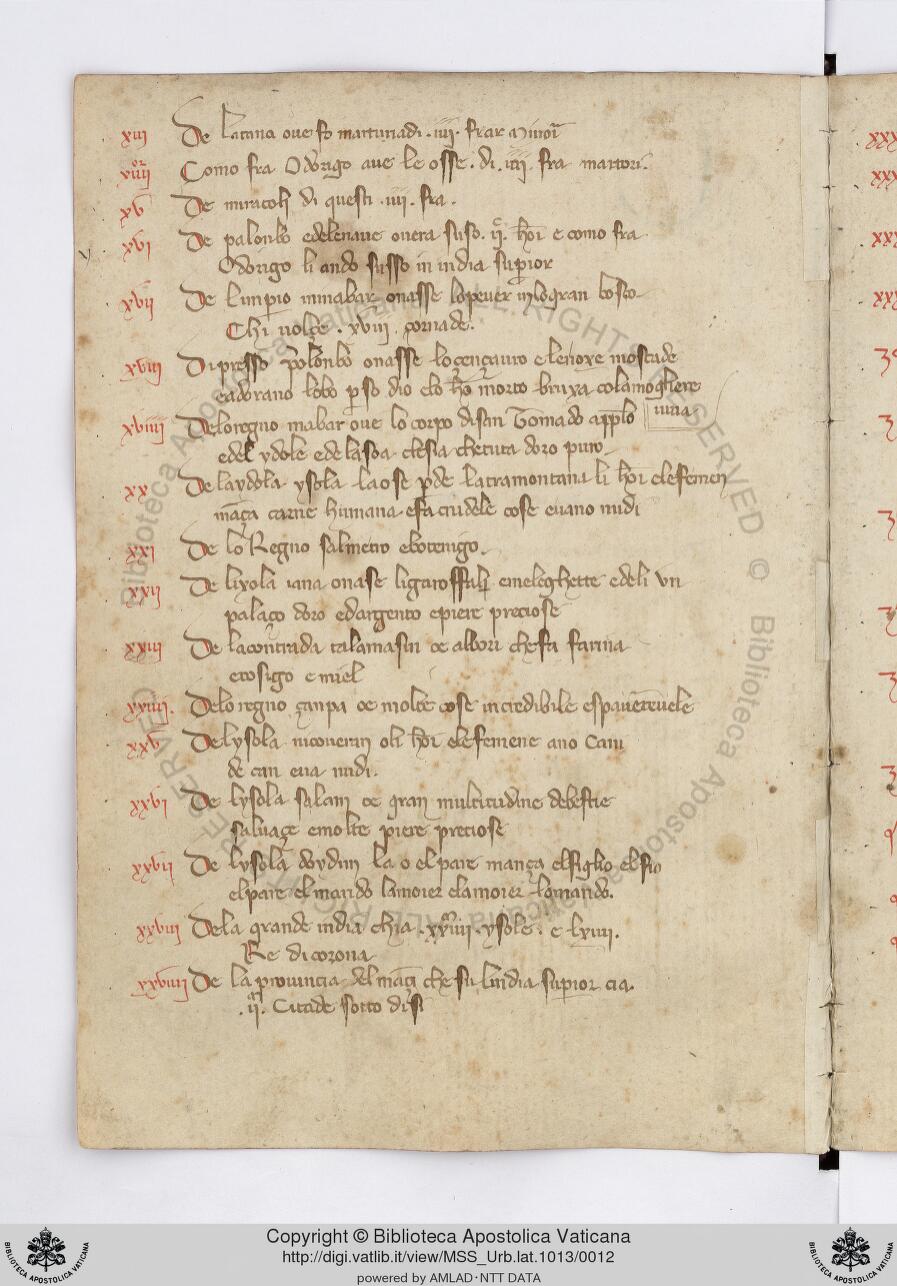 xiii De latana oue fo marturiadi .iiij. frar minori
xiiii Como fra Odorigo aue le osse . di . iiij . fra martori.
xv De miracoli di questi .iiij. fra .
xvi De palonbo edelenaue ouera suso . ij. hoi e como fra
Odorigo li ando susso in india superior
xvii De limpio minabar onasse lopeuer in lo gran bosco
Chi uolçe . xviii . çornade .
xviii Di presso polonbo onasse loçençauro e le noxe moscade
eadorano lobo per so dio elo hõ morto bruxa cola moghiere
uiua
xviiii Delo regno mabar oue lo corpo di san Tomado applo
edel ydole edelasoa clesia chetuta doro puro
xx De la ysola laose perde la tramontana li hoi elefemen
mãça carne humana efa crudele cose euano nudi
xxi De lo Regno salmetro ebotenigo .
xxii De lixola iana onase ligaroffali emeleghette edeli un
palaço doro edargento epiere preciose
xxiii De lacontrada talamasin ce albori chefa farina
etosigo e miel
xxiiii. Delo regno çanpa ce molte cose incredibile espauẽteuele
xxv De lysola nicouerin oli hoi elefemene ano Caui
de can eua nudi .
xxvi De lysola salam ce gran multitudine debestie
saluaçe emolte piere preciose
xxvii De lysola doydin la o elpare mança elfiglio elfio
elpare elmarido lamoier elamoier lomarido.
xxviii Dela grande india chia . xxiiii . ysole . e lxiiii .
Re di corona
xxviiii De la prouincia del mãçi che su lindia superior cia .
.ij. Citade sotto di si
Copyright © Biblioteca Apostolica Vaticana
http://digi.vatlib.it/view/MSS_Urb.lat.1013/0012
powered by AMLAD · NTT DATA